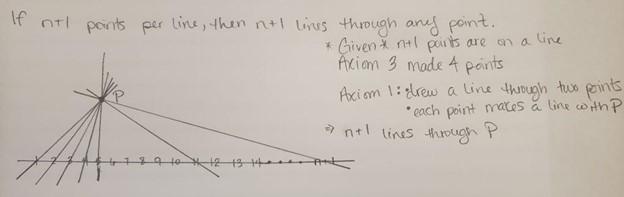 If n+1 points per line, then n+1 lines through any point.
* Given * n+1 points are on a line
Axiom 3 made 4 points
Axiom 1: • drew a line through two points
• each point makes a line with P
⇒ n+1 lines through P
P
1 2 3 4 5 6 7 8 9 10 11 12 13 14 • • • • n+1